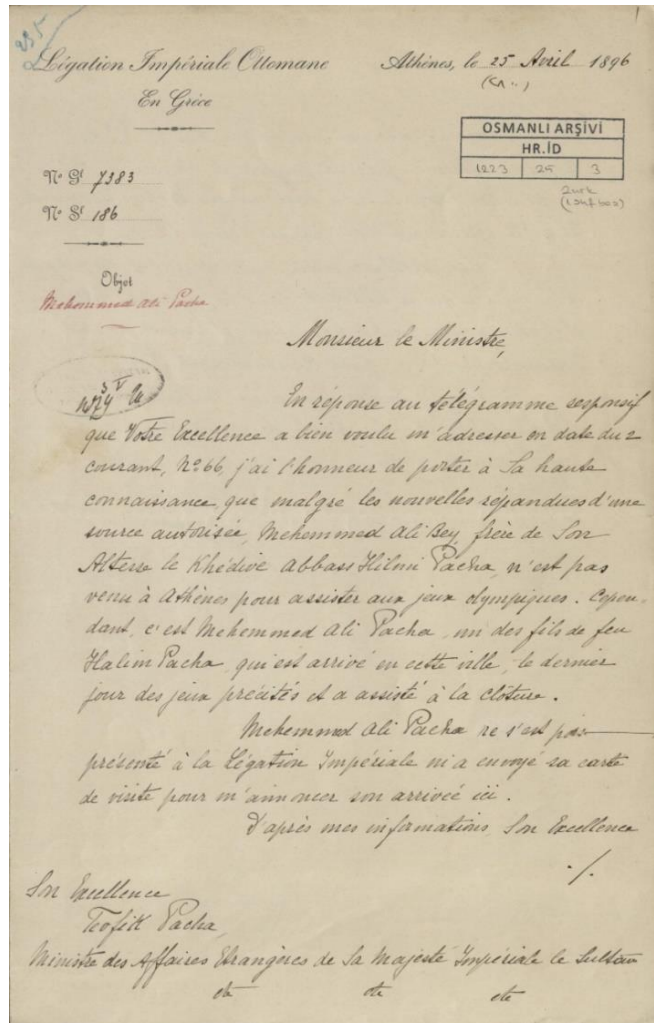 235
Légation Impériale Ottomane
En Grèce
Athènes, le 25 Avril 1896
OSMANLI ARŞİVİ
HR.İD
1223 25 3
No Gl 7383
No Sl 186
Objet
Mehemmed Ali Pacha
Monsieur le Ministre,
En réponse au télégramme responsif
que Votre Excellence a bien voulu m'adresser en date du 2
courant, No 66, j'ai l'honneur de porter à Sa haute
connaissance, que malgré les nouvelles répandues d'une
source autorisée, Mehemmed Ali Bey, frère de Son
Altesse le Khédive Abbass Hilmi Pacha, n'est pas
venu à Athènes pour assister aux jeux olympiques. Cepen-
dant, c'est Mehemmed Ali Pacha, un des fils de feu
Halim Pacha, qui est arrivé en cette ville, le dernier
jour des jeux précités et a assisté à la clôture.
Mehemmed Ali Pacha ne s'est pas
présenté à la Légation Impériale ni a envoyé sa carte
de visite pour m'annoncer son arrivée ici.
D'après mes informations, Son Excellence
./.
Son Excellence
Tevfik Pacha,
Ministre des Affaires Etrangères de Sa Majesté Impériale le Sultan
etc etc etc